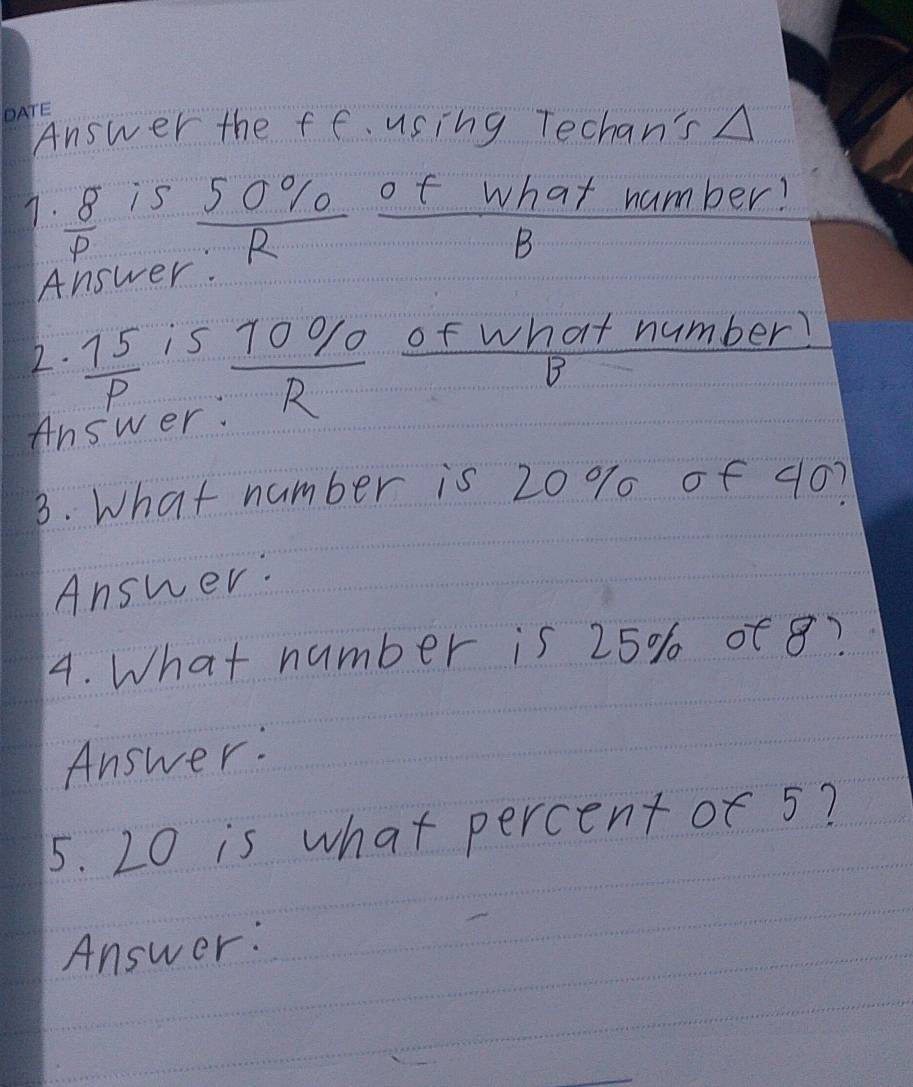 DATE
Answer the ff. using Techan's △
1. 8 is 50% of what number?
P R B
Answer:
2. 15 is 10% of what number?
P R B
Answer:
3. What number is 20% of 40?
Answer:
4. What number is 25% of 8?
Answer:
5. 20 is what percent of 5?
Answer: